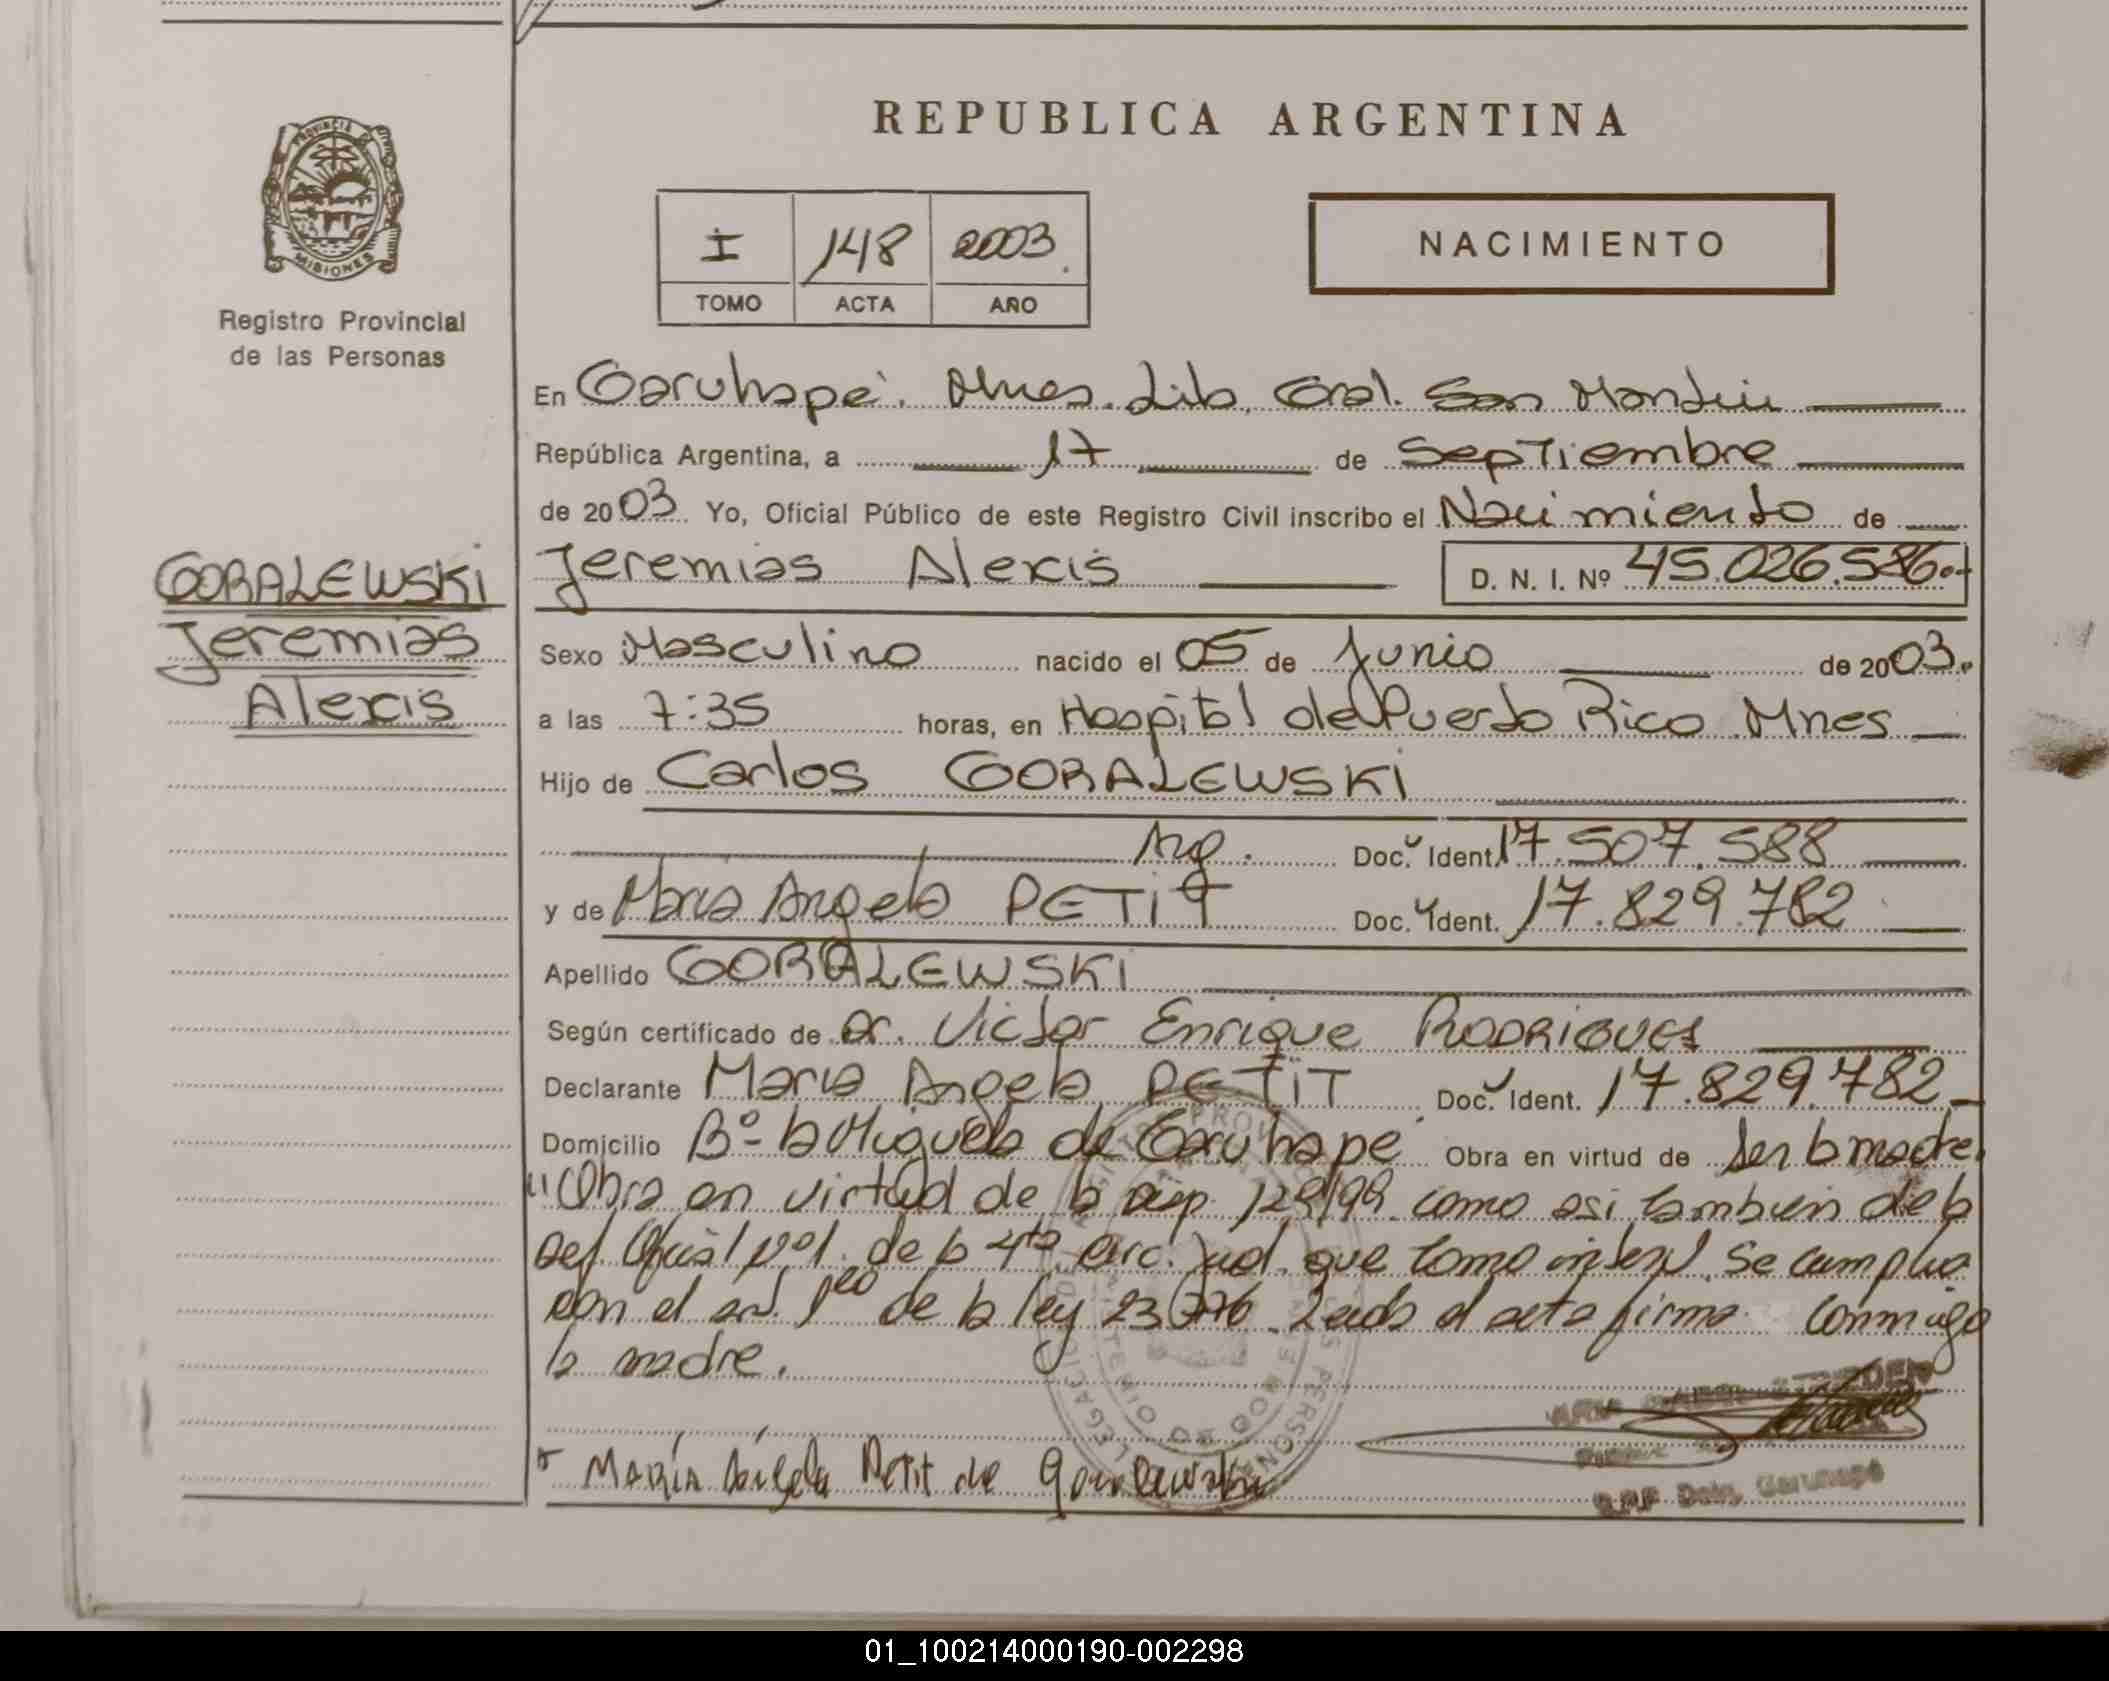 REPUBLICA ARGENTINA
PROVINCIA DE
MISIONES
Registro Provincial
de las Personas
I 148 2003.
TOMO ACTA AÑO
NACIMIENTO
GORALEWSKI
Jeremias
Alexis
En Garuhapé. Mnes. Lib. Gral. San Martin
República Argentina, a 17 de Septiembre
de 2003. Yo, Oficial Público de este Registro Civil inscribo el Nacimiento de
Jeremias Alexis D. N. I. Nº 45.026.586.-
Sexo Masculino nacido el 05 de Junio de 2003.
a las 7:35 horas, en Hospital de Puerto Rico Mnes
Hijo de Carlos GORALEWSKI
Arg. Doc. Ident. 17.507.588
y de Maria Angela PETIT Doc. Ident. 17.829.782
Apellido GORALEWSKI
Según certificado de Dr. Victor Enrique RODRIGUES
Declarante Maria Angela PETIT Doc. Ident. 17.829.782
Domicilio Bº- la Miguela de Garuhape Obra en virtud de Ser la madre.
"Obra en virtud de la Disp. 129/99 como asi tambien de la
Def. Oficial Nº1. de la 4ta Circ. Jud. que tomo interv. Se cumplio
con el art. 1ro de la ley 23.776. Leida el acta firma conmigo
la madre.
MARÍA Ángela Petit de Goralewski
Garuhapé
01_100214000190-002298